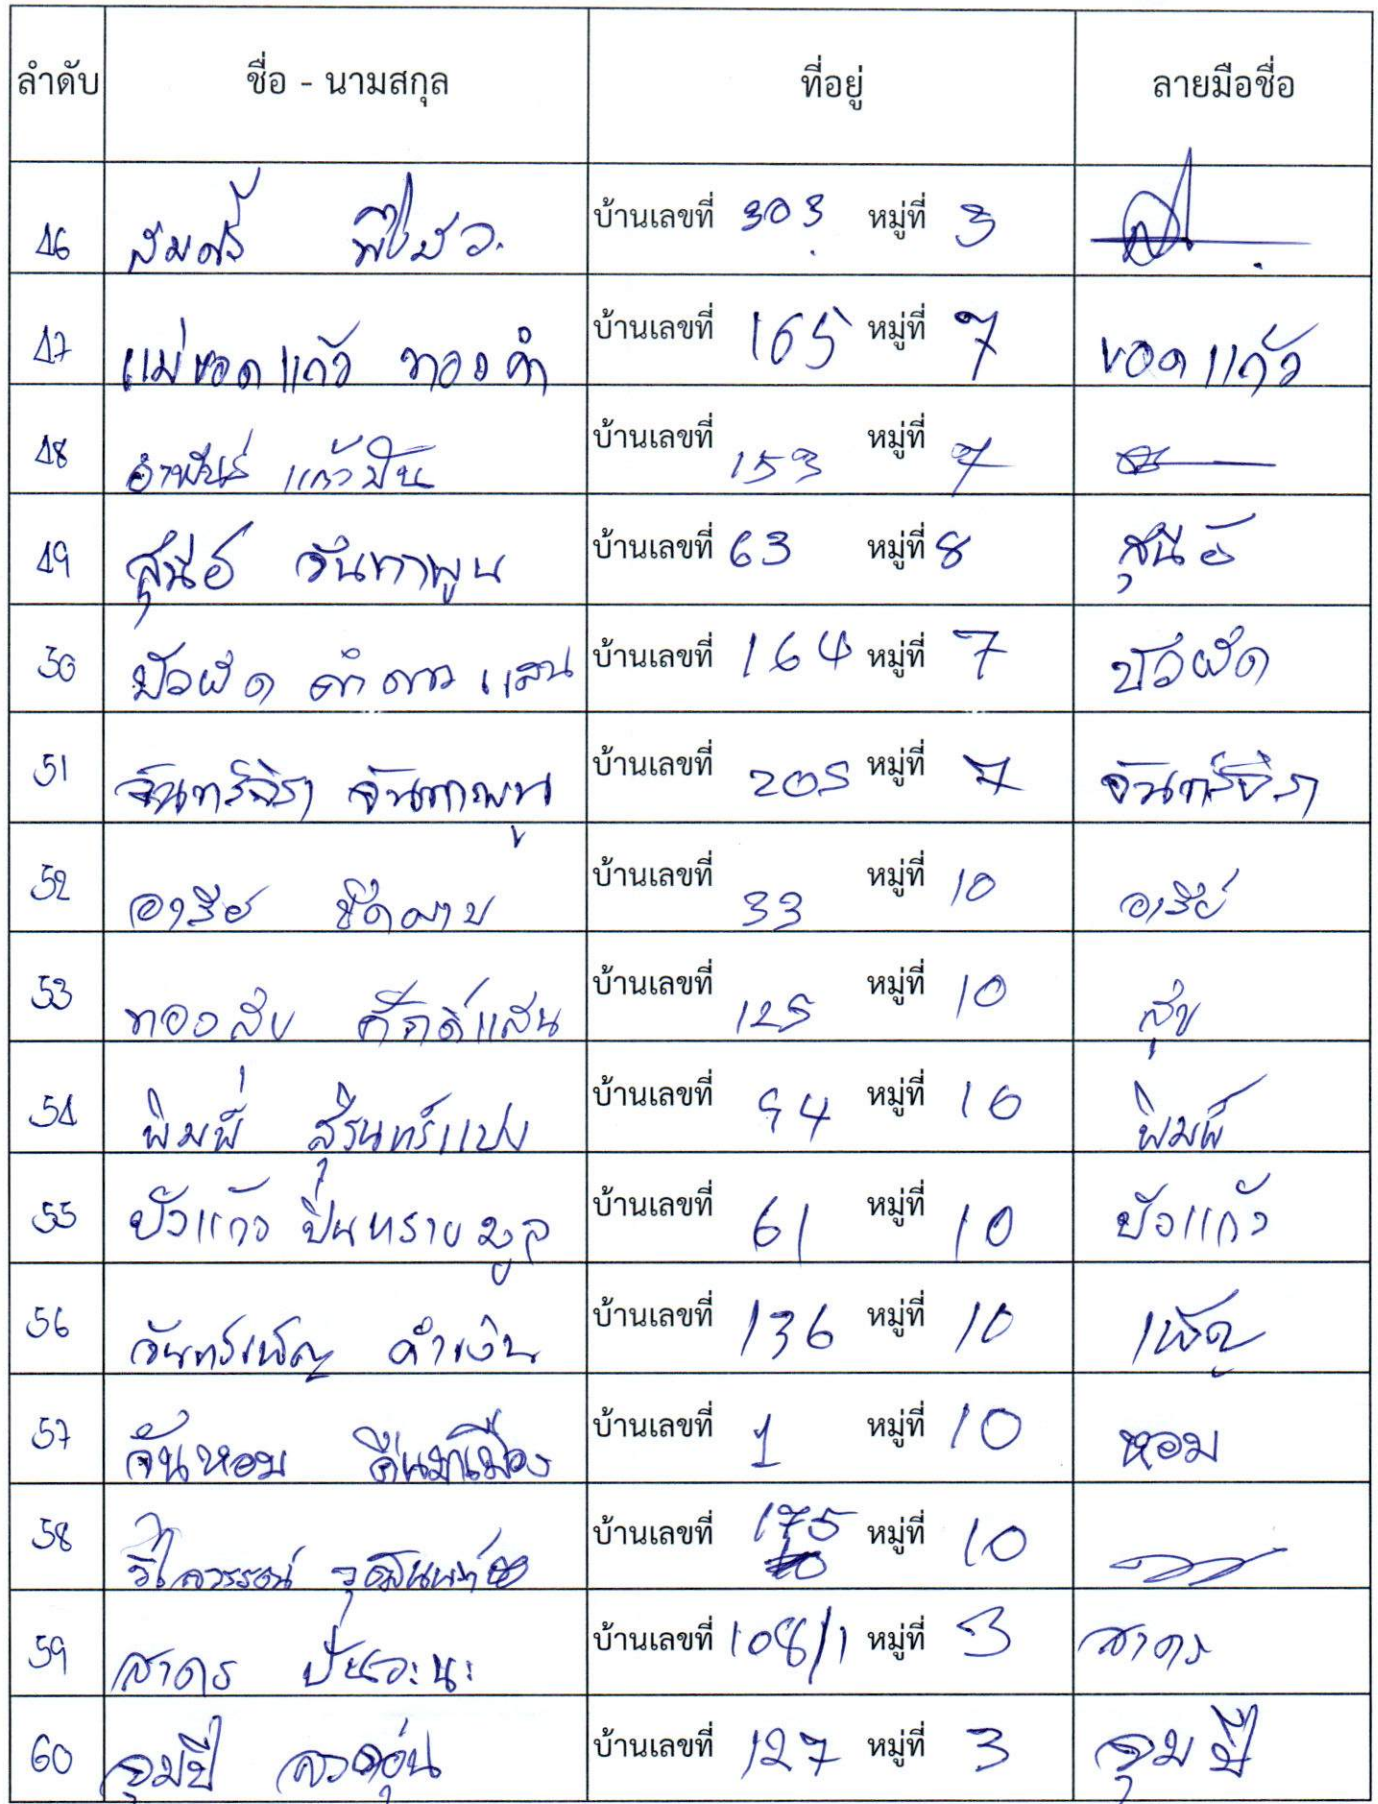 ลำดับ ชื่อ - นามสกุล ที่อยู่ ลายมือชื่อ
46 สมศรี บ้านเลขที่ 303 หมู่ที่ 3
47 แม่ยอดแก้ว ทองคำ บ้านเลขที่ 165 หมู่ที่ 7 ยอดแก้ว
48 อำพันธ์ แก้วปัน บ้านเลขที่ 153 หมู่ที่ 7
49 สุนีย์ จันทาพูน บ้านเลขที่ 63 หมู่ที่ 8 สุนีย์
50 บัวผัด คำดาวแสน บ้านเลขที่ 164 หมู่ที่ 7 บัวผัด
51 จันทร์จิรา จันทาพูน บ้านเลขที่ 205 หมู่ที่ 7 จันทร์จิรา
52 อารีย์ บ้านเลขที่ 33 หมู่ที่ 10 อารีย์
53 ทองสุข ศักดิ์แสน บ้านเลขที่ 125 หมู่ที่ 10 สุข
54 พิมพ์ สุรินทร์แปง บ้านเลขที่ 94 หมู่ที่ 10 พิมพ์
55 บัวแก้ว ปินทรายมูล บ้านเลขที่ 61 หมู่ที่ 10 บัวแก้ว
56 จันทร์เพ็ญ คำเงิน บ้านเลขที่ 136 หมู่ที่ 10 เพ็ญ
57 จันหอม คืนมาเมือง บ้านเลขที่ 1 หมู่ที่ 10 หอม
58 วิไลวรรณ์ บ้านเลขที่ 175 หมู่ที่ 10
59 สาคร ปันวะนะ บ้านเลขที่ 108/1 หมู่ที่ 3 สาคร
60 บ้านเลขที่ 127 หมู่ที่ 3